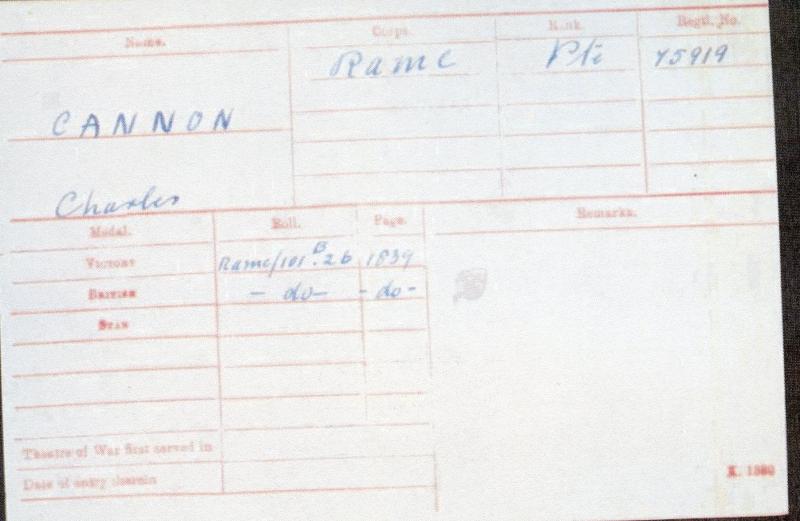 Name. Corps. Rank. Regtl. No.
RAMC Pte 75919
CANNON
Charles
Medal. Roll. Page. Remarks.
VICTORY RAMC/101 B. 26 1839
BRITISH - do - - do -
STAR
Theatre of War first served in
Date of entry therein
K. 1380